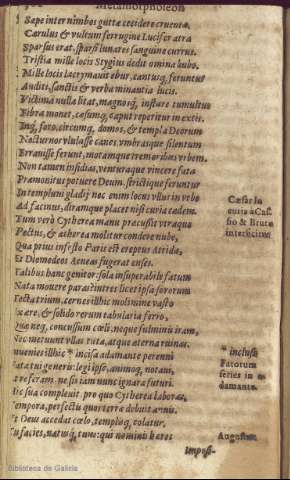 Metamorphoseon
Sæpe inter nimbos guttæ cecidere cruentæ.
Cærulus & vultum ferrugine Lucifer atra
Sparsus erat, sparsi lunares sanguine currus.
Tristia mille locis Stygius dedit omina bubo.
Mille locis lacrymauit ebur, cantusq́; feruntur
Auditi, sanctis & verba minantia lucis.
Victima nulla litat, magnosq́; instare tumultus
Fibra monet, cæsumq́; caput repetitur in extis.
Inq́; foro, circumq́; domos, & templa Deorum
Nocturnos vlulasse canes, vmbrasque silentum
Errauisse ferunt, motamque tremoribus vrbem.
Non tamen insidias, venturaque vincere fata
Præmonitus potuere Deum. strictique feruntur
In templum gladij. neq; enim locus vllus in vrbe
Ad facinus, diramque placet nisi curia cædem.
Tum verò Cytherea manu percussit vtraque
Pectus, & ætherea molitur condere nube,
Qua prius infesto Paris est ereptus Atridæ,
Et Diomedeos Aeneas fugerat enses.
Talibus hanc genitor: sola insuperabile fatum
Nata mouere paras? intres licet ipsa sororum
Tecta trium. cernes illhic molimine vasto
ære, & solido rerum tabularia ferro,
Quæ neq; concussum cœli, neque fulminis iram,
Nec metuunt vllas tuta, atque æterna ruinas.
nuenies illhic * incisa adamante perenni
Fata tui generis: legi ipse, animoq́; notaui,
t referam. ne sis iam nunc ignara futuri.
ic sua compleuit pro quo Cytherea laboras,
empora, perfectis quos terræ debuit annis.
t Deus accedat cœlo, templisq́; colatur,
u facies, natusq́; suus: qui nominis hæres
Imposi-
Cæsar in
curia à Cas
sio & Bruto
interficitur
* inclusa
Fatorum
series in a-
damante.
Augustus.
Biblioteca de Galicia